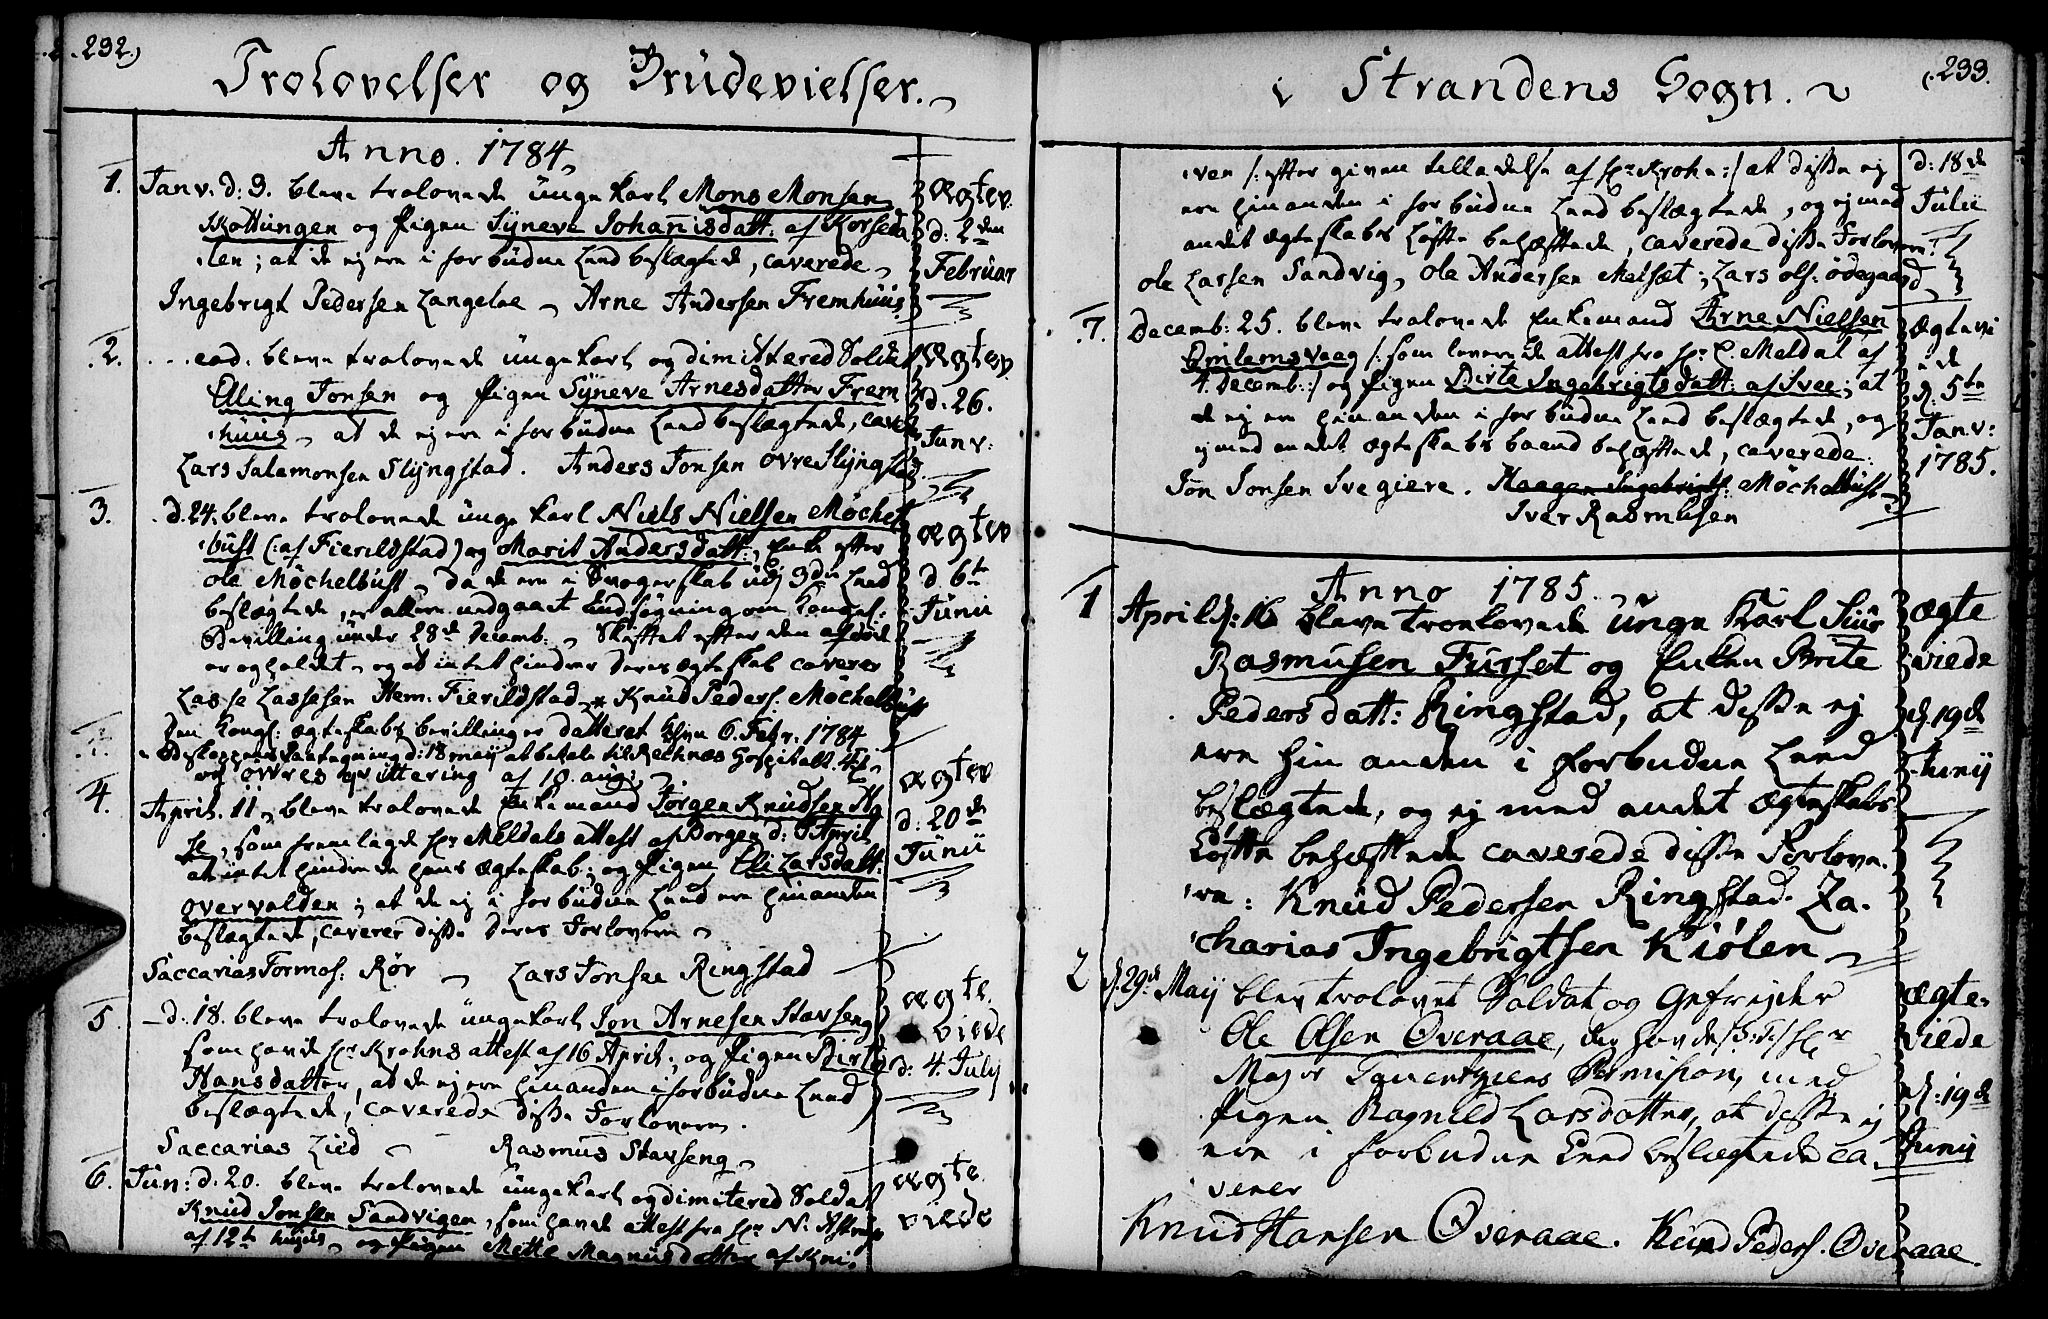 232.)
Trolovelser og Brüdevielser.
Anno. 1784
1. Janv. d: 3. bleve trolovede ünge karl Mons Monsen
Skottungen og Pigen Sÿneve Johannisdatt: af Korseda
len; at de ej ere i forbüdne Leed beslægtede, caverede
Ingebrigt Pedersen Langeloe Arne Andersen Fremhüüs.
ægtev.
d: 2den
Februar
2. eod. bleve trolovede ünge karl og dimittered Soldat
Elling Jonsen og Pigen Sÿneve Arnesdatter Frem
hüüs, at de ej ere i forbüdne Leed beslægtede, caverede
Lars Salamonsen Slÿngstad. Anders Jonsen øvre Slÿngstad
ægtev.
d. 26.
Janv:
3. d. 24. bleve trolovede ünge karl Niels Nielsen Møchel
büst (: af Fierildstad) og Marit Andersdatt:, Enke efter
ole Møchelbüst, da de ere i Svogerskab udj 3die Leed
beslægtede, er allern. undgaaet Ansøgning om Kongel:
Bevilling ünder 28d Decemb: Skiftet efter den afdøde
er og holdet, og at intet hindrer deres ægteskab caverer
Lasse Lassesen Nem. Fierildstad * Knüd Peders. Møchelbüst
Den Kongl: ægteskabs bevilling er datteret Khvn 6. Febr. 1784
Bleskoppens Paategning d: 18 maij at betale til Recknes Hospital
og øvres qvittering af 10. aug:
ægtev
d 6te
Junii
4. April. 11, bleve trolovede Enkemand Jørgen Knüdsen
som fremlagde Hr. Meldals attest af Borgen d: 6 April
at intet hindrede hans ægteskab; og Pigen Eli Larsdatt:
overvolden; at de ej i forbüdne Leed ere hinanden
beslægtede, caverer disse deres Forlovere
Saccarias Tormos: Rør Lars Jonsen Ringstad
ægtev
d: 20de
Junii
5. d: 18. bleve trolovede ünge karl Jon Arnesen Stavseng
som havde Hr Krohns attest af 16 April:, og Pigen Birte
Hansdatter, at de ej ere hinanden i forbüdne Leed
beslægtede, caverede disse Forlovere.
Saccarias Lied Rasmus Stavseng
ægte
viede
d: 4. Julÿ
6. Jun: d. 20. bleve trolovede ünge karl og dimitered Soldat
Knüd Jonsen Sandvigen, som havde attest fra Hr N. Astrup
af 12te hujus, og Pigen Mette Magnusdatter af Kni-
ægte.
viede
i Strandens Sogn.
(.233.
ven /: efter given tilladelse af Hr. Krohn :/ at disse ej
ere hinanden i forbüdne Leed beslægtede, og ej med
andet ægteskabs Løfte behæftede, caverede disse Forlovere:
Ole Larsen Sandvig, Ole Andersen Melsæt; Lars Ols: ødegaard
d: 18de
Julii
7. Decemb: 25. bleve trolovede Enkemand Arne Nielsen
Emlemsvaag /: som leverede attest fra Hr. C. Meldal af
4. Decemb: :/ og Pigen Birte Ingebrigtsdatt: af Ivee; at
de ej ere hinanden i forbüdne Leed beslægtede, og
ej med andet ægteskabs baand behæftede, caverede:
Jon Jonsen Svegiere. Haagen Ingebrigts: Møchelbüst
Iver Rasmusen
Ægtevi
ede
d: 5te
Janv:
1785.
Anno 1785.
1 April d: 16 bleve troelovede unge Karl Siür
Rasmusen Furset og Enken Brite
Pedersdatt: Ringstad, at desse ej
ere hin anden i forbudne Leed
beslægtede, og ej med andet Ægteskabs
Løfte behæftede caverede disse Forlove-
re: Knüd Pedersen Ringstad. Za-
charias Ingebrigtsen Kiølen
Ægte
viede
d. 19de
Junij
2 d. 29de Maij blev trolovet Soldat og Gefrejder
Ole Olsen Øveraae, der havde Hr
Major Permission, med
Pigen Ragnild Larsdatter, at desse ej
ere i forbudne Leed beslægtede ca-
verer
Knud Hansen Øveraae. Knud Peders. Øveraae
Ægte-
viede
d: 19de
Junij